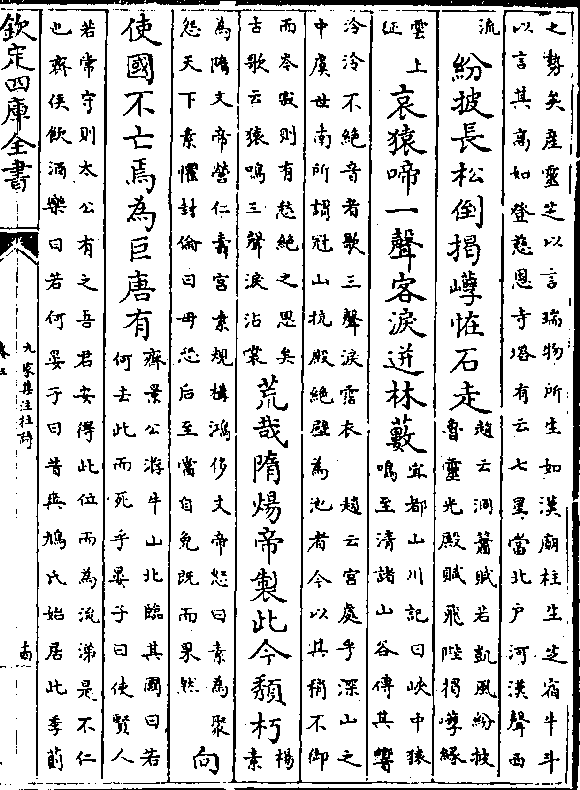 之勢矣産靈芝以言瑞物所生如漢廟柱生芝宿牛斗
以言其高如登慈恩寺塔有云七星當北户河漢聲西
流
紛披長松倒揭㠎怪石走
趙云洞簫賦若凱風紛披
魯靈光殿賦飛陛揭孽緣
雲上
征
哀猿啼一聲客淚迸林藪
宜都山川記曰峽中猿
鳴至清諸山谷傳其響
泠泠不絶音者歌三聲淚霑衣 趙云宫處乎深山之
中虞世南所謂冠山抗殿絶壑為池者今以其稍不御
而岑寂則有愁絶之思矣
古歌云猿鳴三聲淚沾裳
荒哉隋煬帝製此今頽朽
楊
素
為隋文帝營仁壽宫素規構鴻侈文帝怒曰素為聚
怨天下素懼封倫曰毋恐后至當自免既而果然
向
使國不亡焉為巨唐有
齊景公游牛山北臨其國曰若
何去此而死乎晏子曰使賢人
若常守則太公有之吾君安得此位而為流涕是不仁
也齊侯飲酒樂曰若何晏子曰昔爽鳩氏始居此季萴
欽定四庫全書
九家集注杜詩